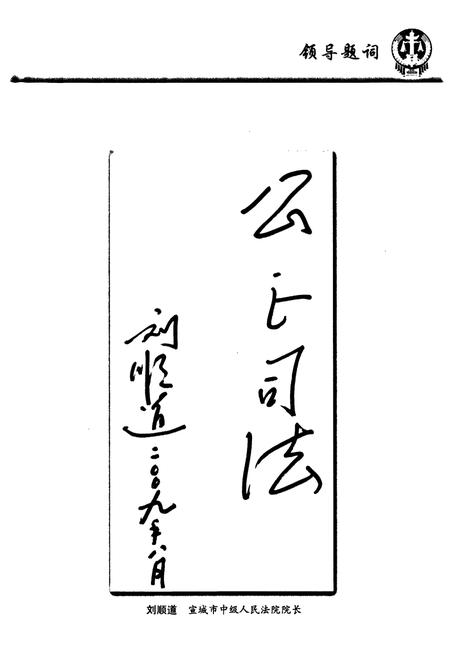 领导题词
公正司法
刘顺道
二〇〇九年八月
刘顺道 宣城市中级人民法院院长